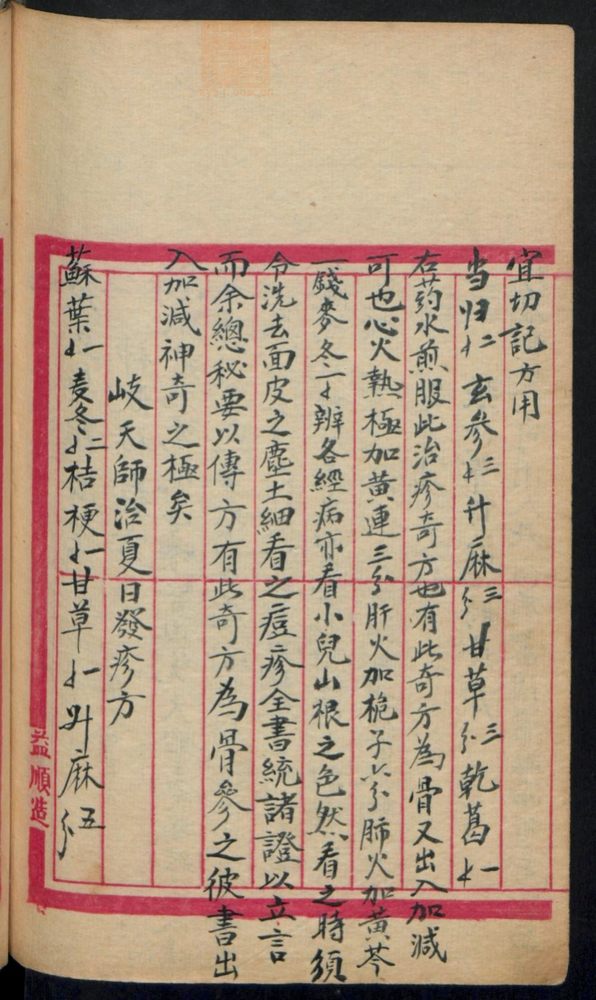 宜切記方用
当归二 玄参三 升麻三分 甘草三分 乾葛一
右药水煎服此治疹奇方也有此奇方為骨又出入加減
可也心火熱極加黄連三分肝火加梔子六分肺火加黄芩
一錢麥冬一辨各經病亦看小兒山根之色然看之時須
令洗去面皮之塵土細看之痘疹全書統諸證以立言
而余總秘要以傳方有此奇方為骨參之彼書出
入加減神奇之極矣
岐天師治夏日發疹方
蘇葉一麦冬二桔梗一甘草一升麻五分
益順造